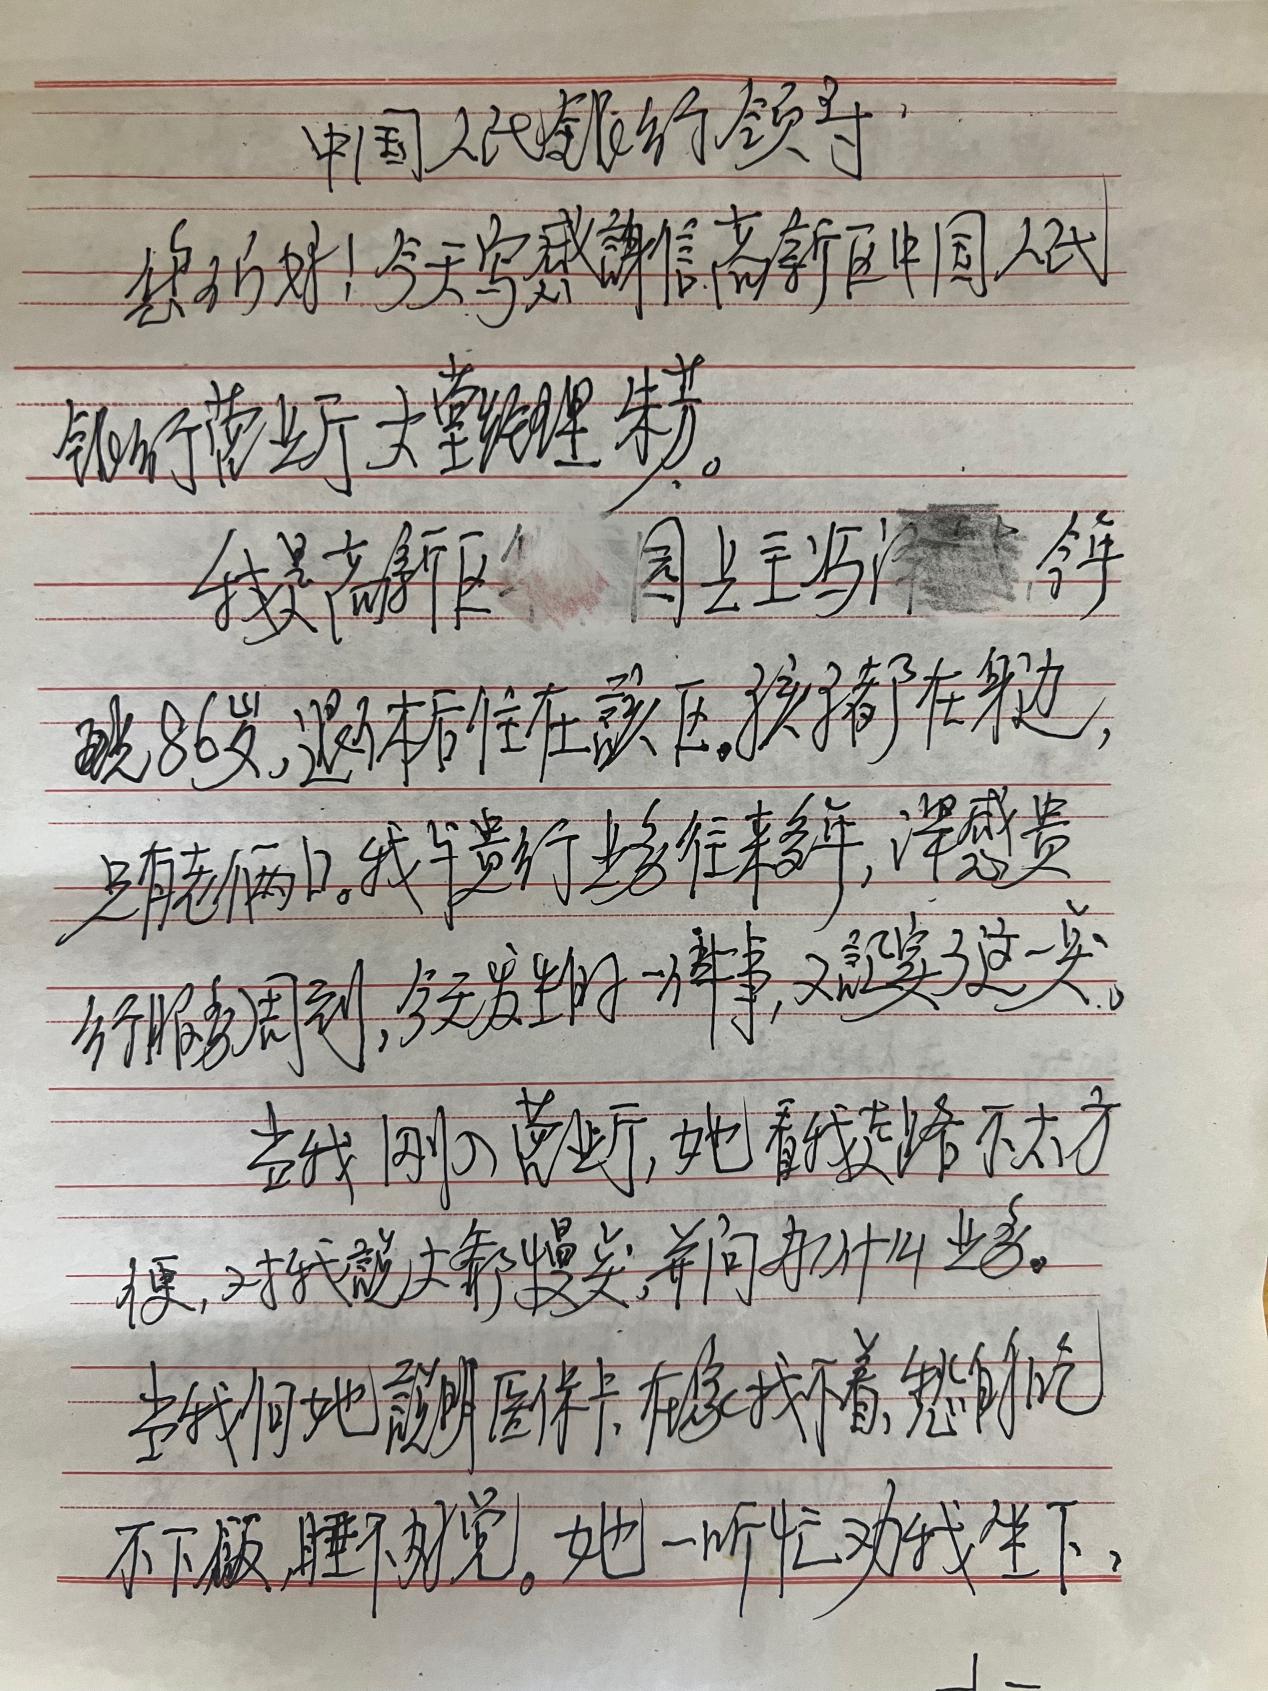 中国人民银行领导,
您们好!今天写感謝信高新区中国人民
银行营业厅大堂经理朱芳。
我是高新区 园业主冯 今年
86岁,退休后住在該区。孩子都在身边,
只有老俩口。我与贵行业务往来多年,深感贵
行服务周到,今天发生的一件事,又証实了这一点。
当我刚入营业厅,她看我走路不太方
便,对我說大爷慢点,并问办什么业务。
当我向她說明医保卡在家找不着,愁的吃
不下飯,睡不好觉。她一听忙劝我坐下,